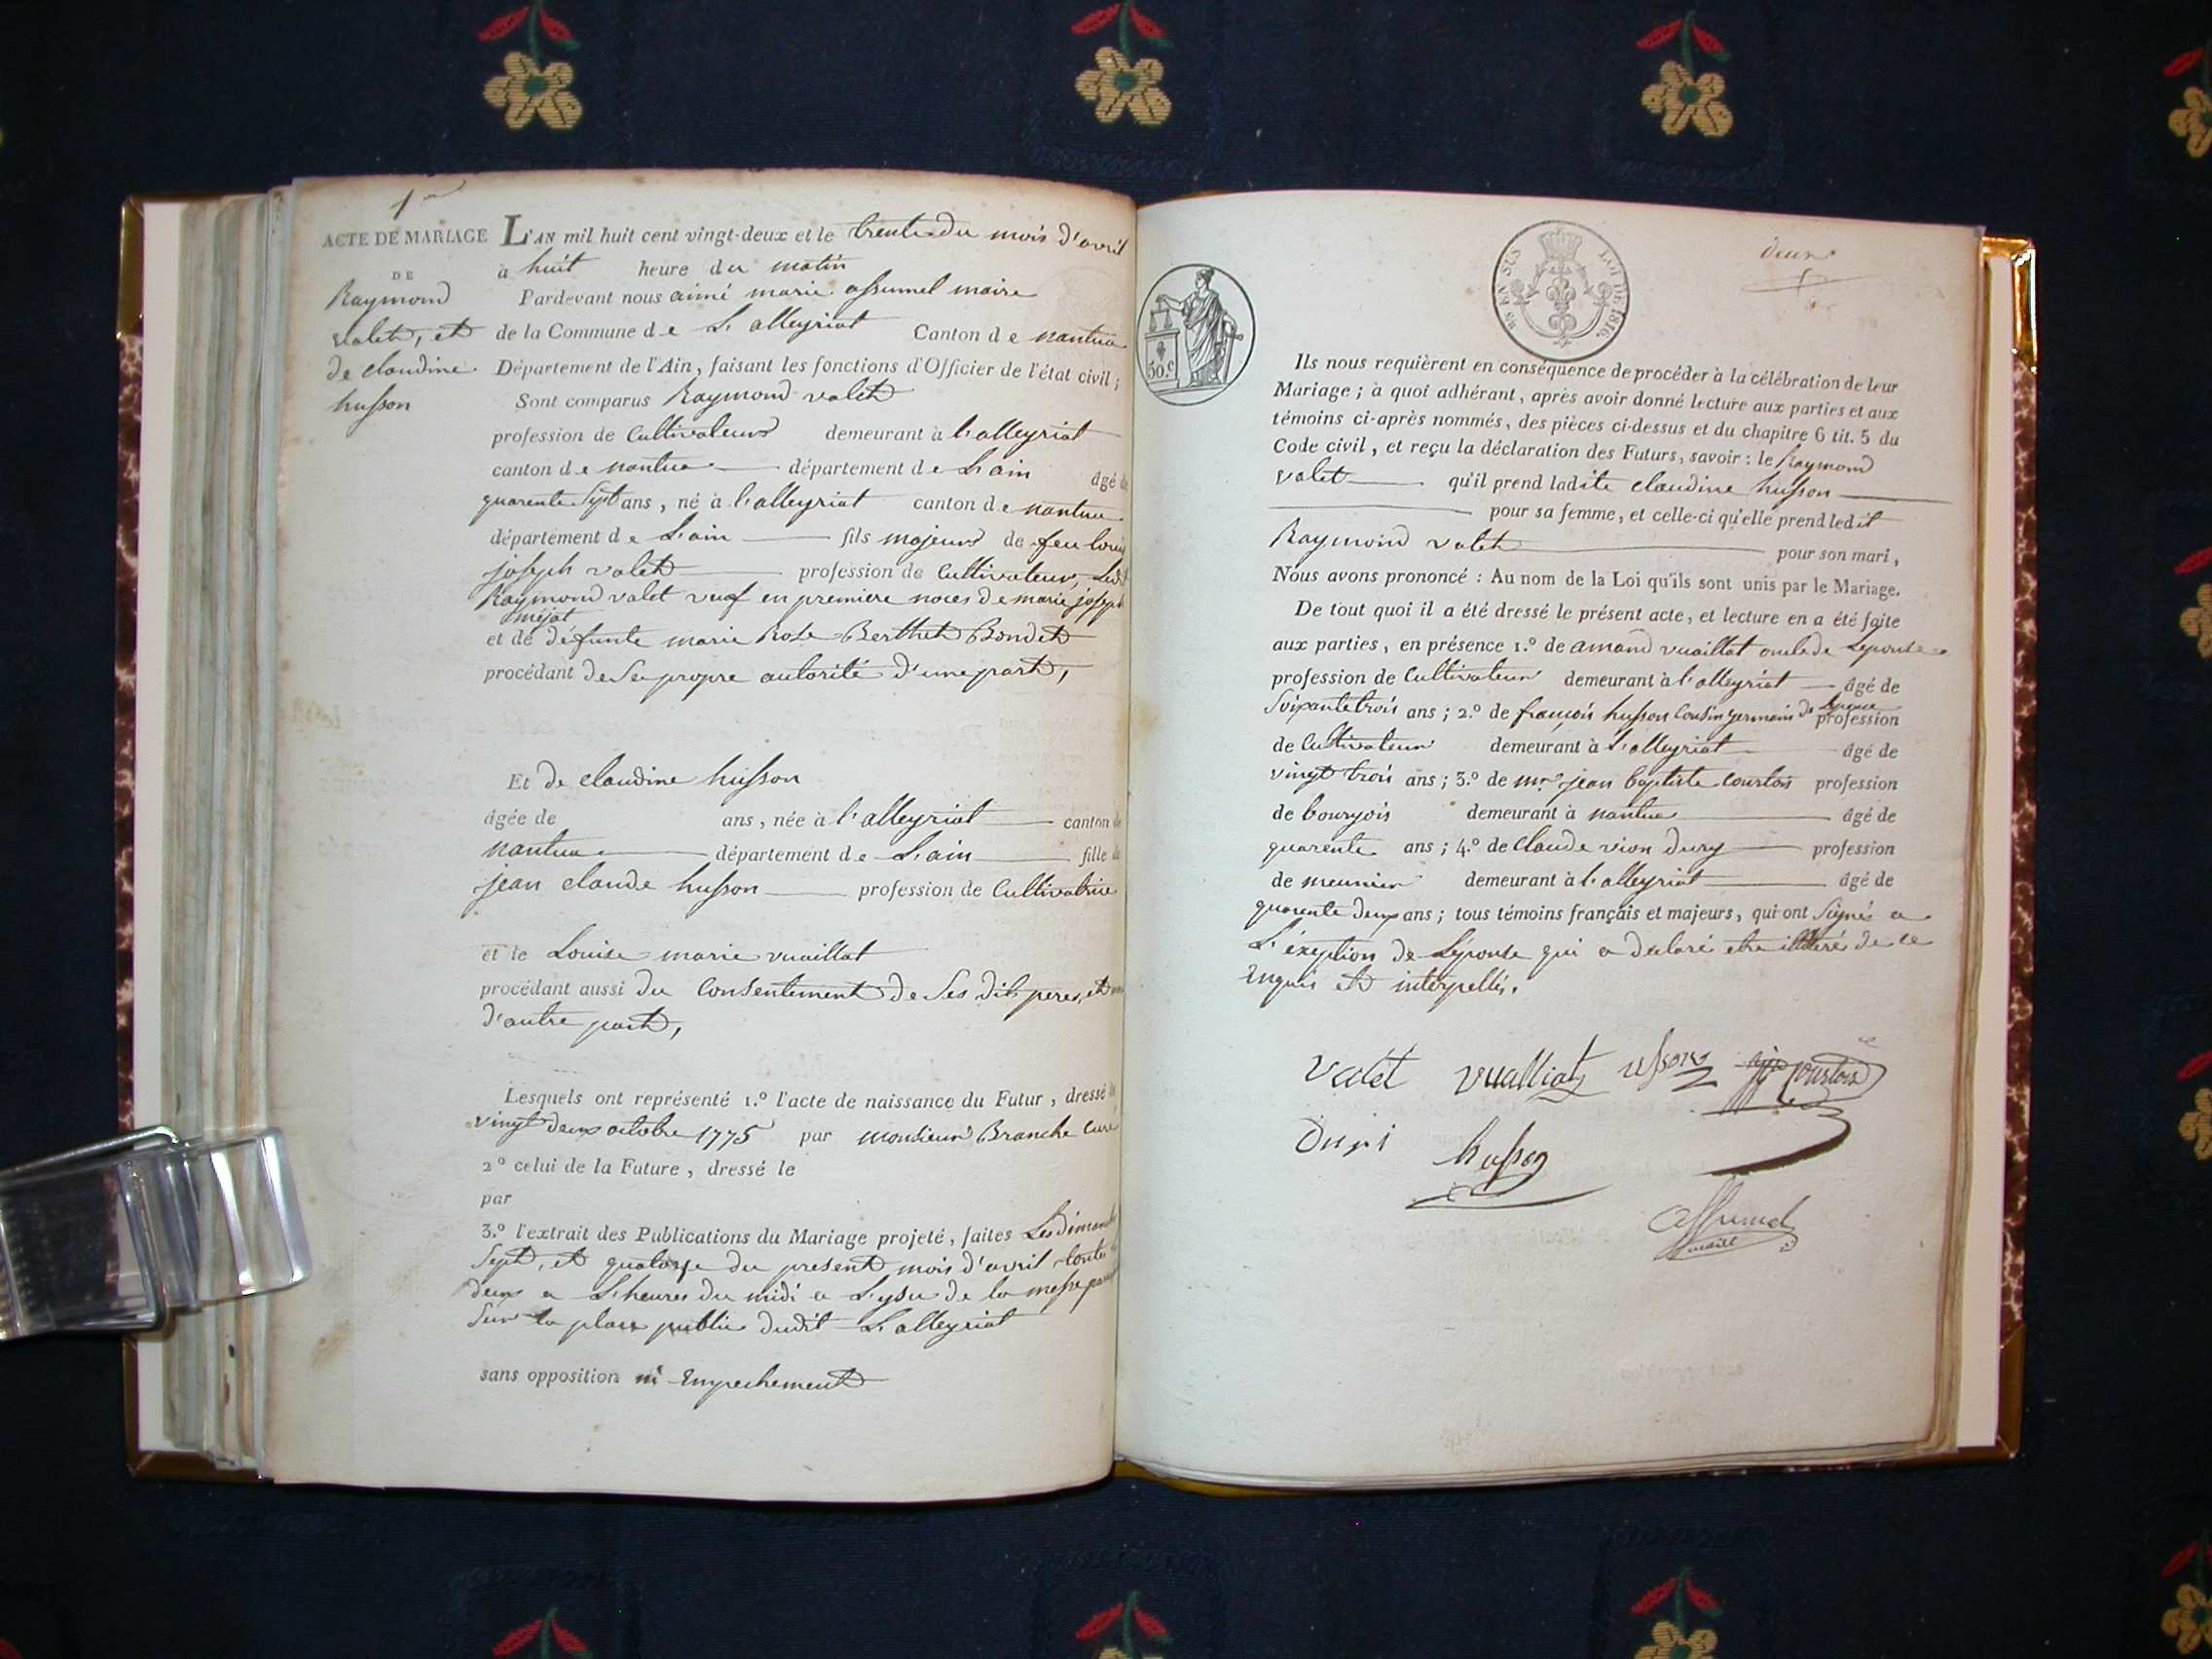 1er
ACTE DE MARIAGE
DE
Raymond
valet, et
de claudine
husson
L'AN mil huit cent vingt-deux et le trente du mois d'avril
à huit heure du matin
Pardevant nous aimé marie assumel maire
de la Commune de L'alleyriat Canton de nantua
Département de l'Ain, faisant les fonctions d'Officier de l'état civil;
Sont comparus Raymond valet
profession de Cultivateur demeurant à l'alleyriat
canton de nantua département de L'ain âgé de
quarente Sept ans, né à l'alleyriat canton de nantua
département de L'ain fils majeur de feu louis
joseph valet profession de Cultivateur, Ledit
Raymond valet veuf en premiere noces de marie joseph
méjat
et de défunte marie Rose Berthet Bondet
procédant de Sa propre autorité d'une part,
Et de claudine husson
âgée de ans, née à l'alleyriat canton de
nantua département de L'ain fille de
jean claude husson profession de Cultivatrice
et de Louise marie vuaillat
procédant aussi du Consentement de Ses dits peres, et
d'autre part,
Lesquels ont représenté 1.º l'acte de naissance du Futur, dressé le
vingt deux octobre 1775 par monsieur Branche Curé
2º celui de la Future, dressé le
par
3.º l'extrait des Publications du Mariage projeté, faites Les dimanche
Sept, et quatorze du present mois d'avril toute
deux a L'heures du midi a L'ysu de la messe
Sur la place public dudit L'alleyriat
sans opposition ni Empechement
EN SUS
LOI DE 1816.
deux
50.c
Ils nous requièrent en conséquence de procéder à la célébration de leur
Mariage; à quoi adhérant, après avoir donné lecture aux parties et aux
témoins ci-après nommés, des pièces ci-dessus et du chapitre 6 tit. 5 du
Code civil, et reçu la déclaration des Futurs, savoir: le Raymond
valet qu'il prend ladite claudine husson
pour sa femme, et celle-ci qu'elle prend ledit
Raymond valet pour son mari,
Nous avons prononcé: Au nom de la Loi qu'ils sont unis par le Mariage.
De tout quoi il a été dressé le présent acte, et lecture en a été faite
aux parties, en présence 1.º de amand vuaillat oncle de Lepouse
profession de Cultivateur demeurant à l'alleyriat âgé de
Soixante trois ans; 2.º de françois husson Cousin germain de Lepouse profession
de Cultivateur demeurant à L'alleyriat âgé de
vingt trois ans; 3.º de mr jean baptiste courtois profession
de bourgois demeurant à nantua âgé de
quarente ans; 4.º de Claude vion dury profession
de meunier demeurant à l'alleyriat âgé de
quarente deux ans; tous témoins français et majeurs, qui ont Signés a
L'éxeption de Lépouse qui a declaré etre illiteré de ce
Enquis et interpellés.
Valet vualliat usson Courtois
Duri husson
assumel
maire